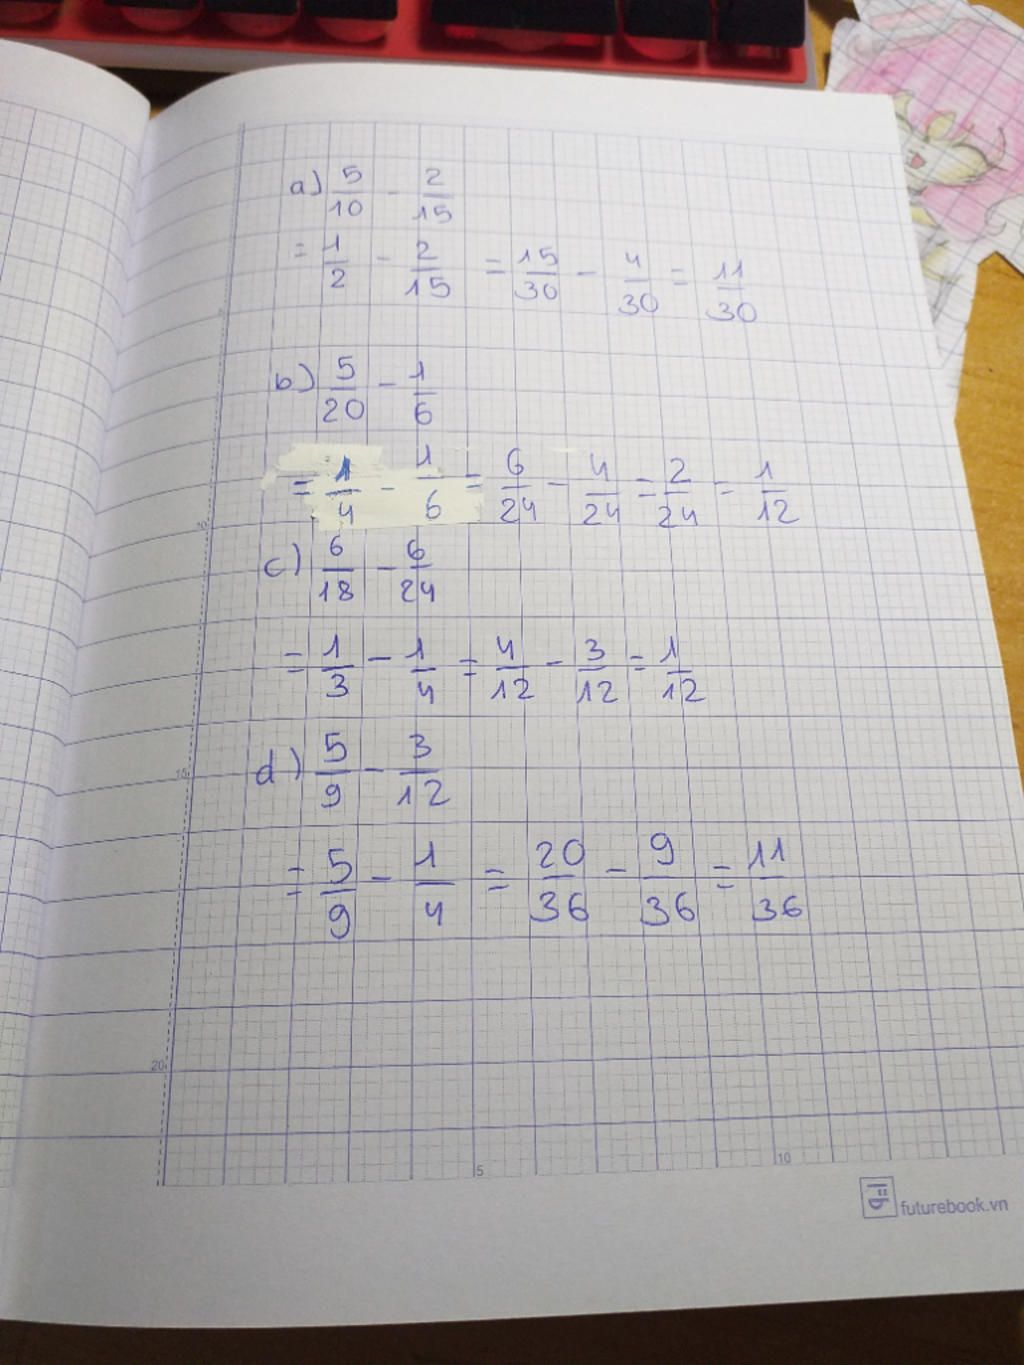 a) 5/10 - 2/15
= 1/2 - 2/15 = 15/30 - 4/30 = 11/30
b) 5/20 - 1/6
= 1/4 - 1/6 = 6/24 - 4/24 = 2/24 = 1/12
c) 6/18 - 6/24
= 1/3 - 1/4 = 4/12 - 3/12 = 1/12
d) 5/9 - 3/12
= 5/9 - 1/4 = 20/36 - 9/36 = 11/36
15
20
5
10
futurebook.vn